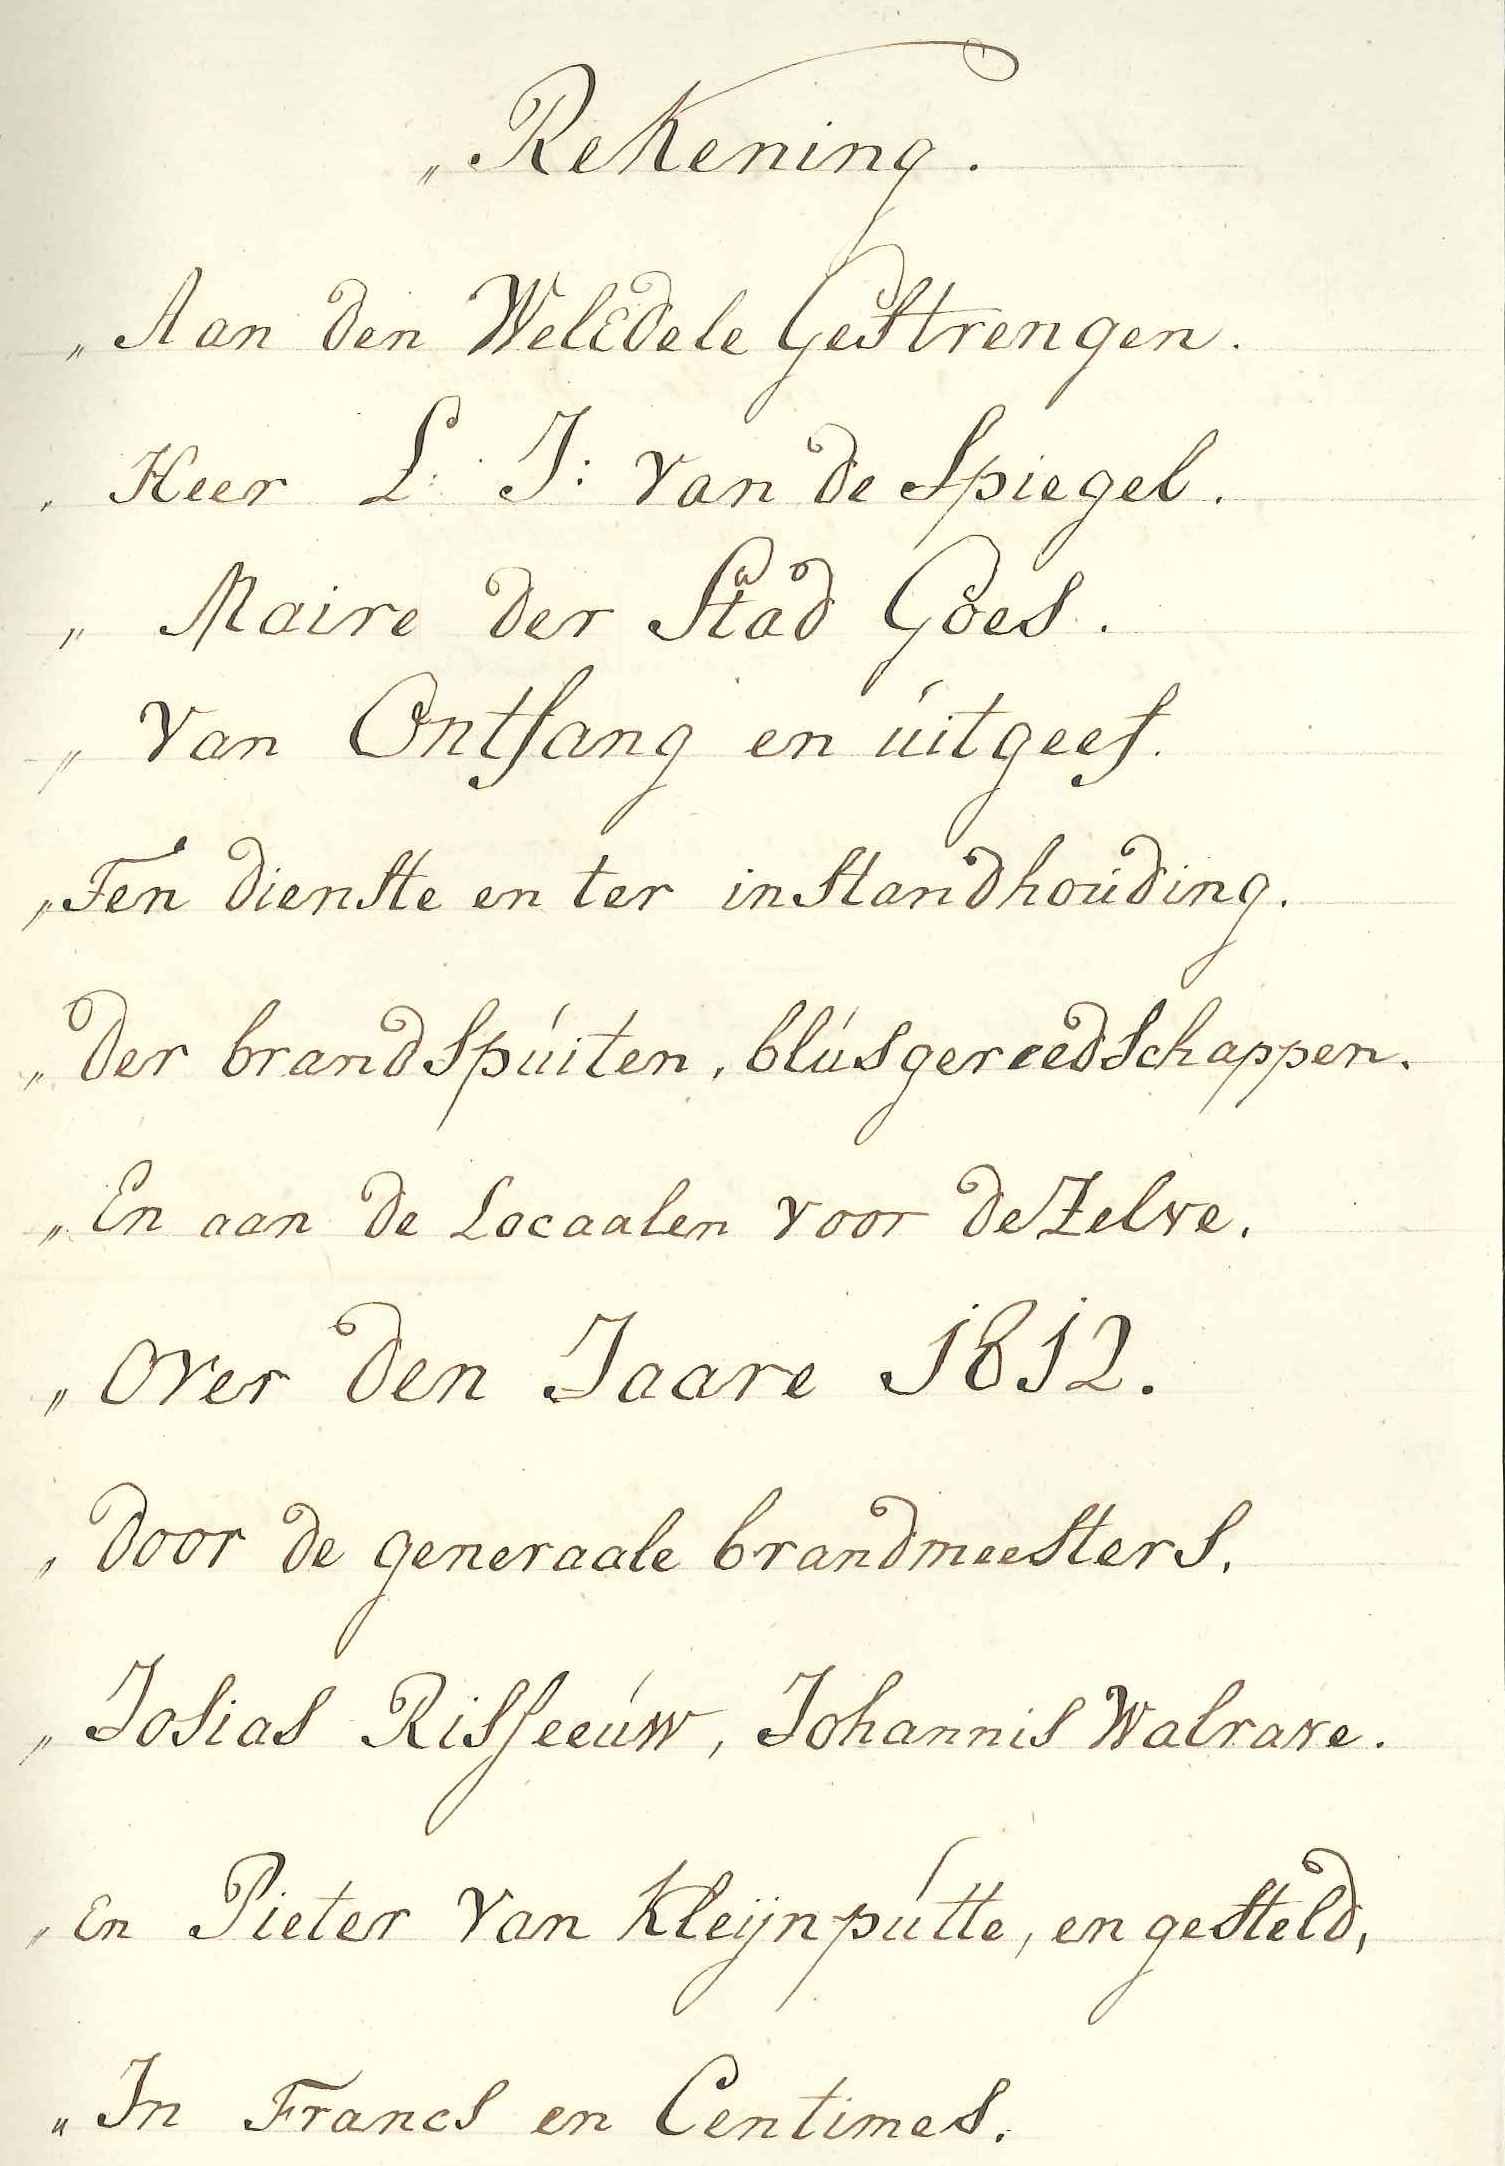 „ Rekening.
„ Aan den WelEdele Gestrengen.
„ Heer L: J: van de Spiegel.
„ Maire der Stad Goes.
„ Van Ontfang en uitgeef.
„ Ten dienste en ter instandhouding.
„ Der brandspuiten, blusgereedschappen.
„ En aan de Locaalen voor deZelve.
„ Over den Jaare 1812.
„ Door de generaale brandmeesters,
„ Josias Risseeuw, Johannis Walrave.
„ En Pieter van Kleijnputte, en gesteld,
„ In Francs en Centimes.